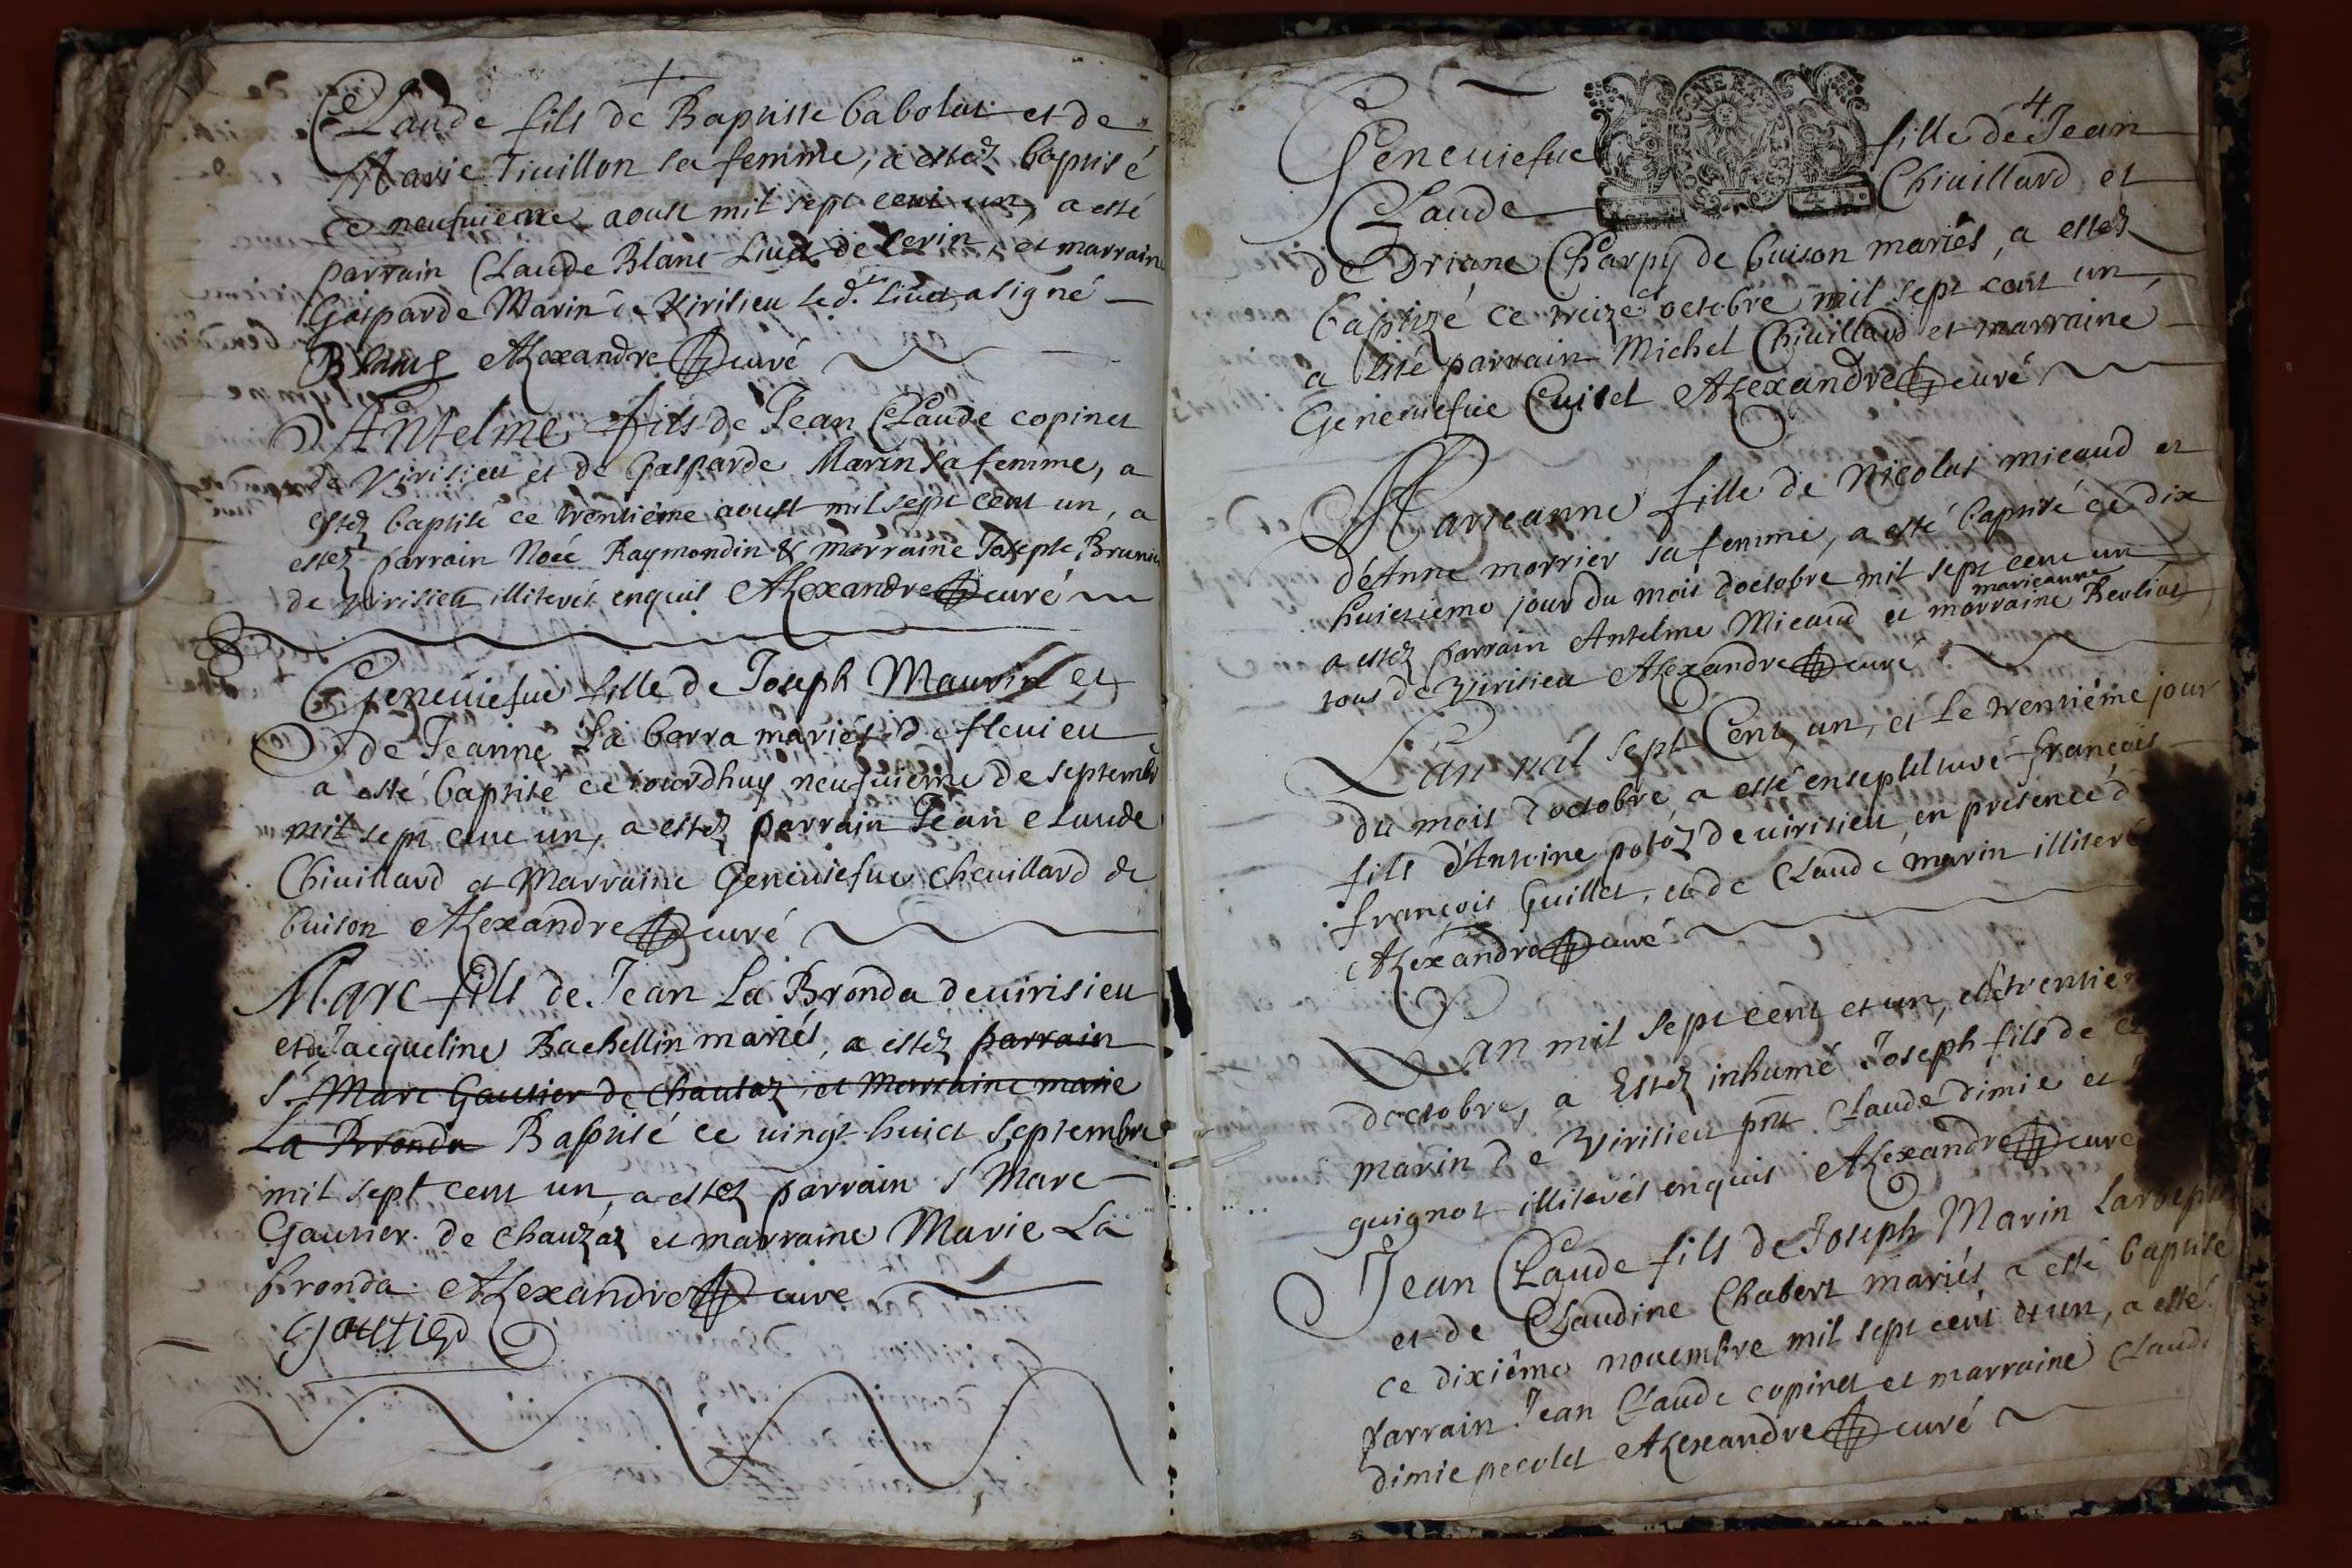 Claude fils de Baptiste Cabolut et de
Marie Tiuillon sa femme, a estez baptisé
ce neufuieme aoust mil sept cent un, a esté
parrain Claude Blanc Liuet de Cerin, et marraine
Gasparde Marin de Virisieu led. Liuet a signé
Blanc Alexandre curé
Antelme fils de Jean Claude copinet
de Virisieu et de Gasparde Marin sa femme, a
estez baptisé ce trentiéme aoust mil sept cent un, a
estez parrain Noéé Raymondin & marraine Josepte
de Virisieu illiterés enquis Alexandre curé
Geneuiefue fille de Joseph Maurin et
de Jeanne La barra mariés de fleuieu
a esté baptisé ce iourdhuy neufuieme de septembre
mil sept cent un, a estez parrain Jean Claude
Chiuillard et Marraine Geneuiefue cheuillard de
buison Alexandre curé
Marc fils de Jean La Bronda de uirisieu
et de Jacqueline Bachellin mariés, a estez parrain
Sr. Marc Gautier de Chautaz et Marraine marie
La Bronda Baptisé ce uingt huict Septembre
mil sept cent un, a estez parrain Sr Marc
Gautier de Chauzaz et marraine Marie La
bronda Alexandre curé
Gautier
4
Geneuiefue fille de Jean
Claude Chiuillard et
de Driane Charpy de buison mariés, a estez
baptizé ce treize octobre mil sept cent un,
a esté parrain Michel Chiuillard et marraine
Geneuiefue Cuiset Alexandre curé
Marieanne fille de Nicolas micaud et
d'Anne morrier sa femme, a esté baptisé ce dix
huictiéme jour du mois doctobre mil sept cent un
a estez parrain Antelme Micaud et marraine marieanne Berliot
tous de Virisieu Alexandre curé
L'an mil sept Cent, un, et Le trentiéme jour
du mois d'octobre, a esté ensepulturé françois
fils d'Antoine potoz de uirisieu, en presence d
françois Guillet, et de Claude marin illiteré
Alexandre curé
L an mil sept cent et un, et le trentie
doctobre, a Estez inhumé Joseph fils de
marin de Virisieu pnt Claude dimie et
guignot illiterés enquis Alexandre curé
Jean Claude fils de Joseph Marin
et de Claudine Chabert mariés a esté baptisé
ce dixiéme nouembre mil sept cent et un, a esté
parrain Jean Claude copinet et marraine Claude
dimie pecolet Alexandre curé